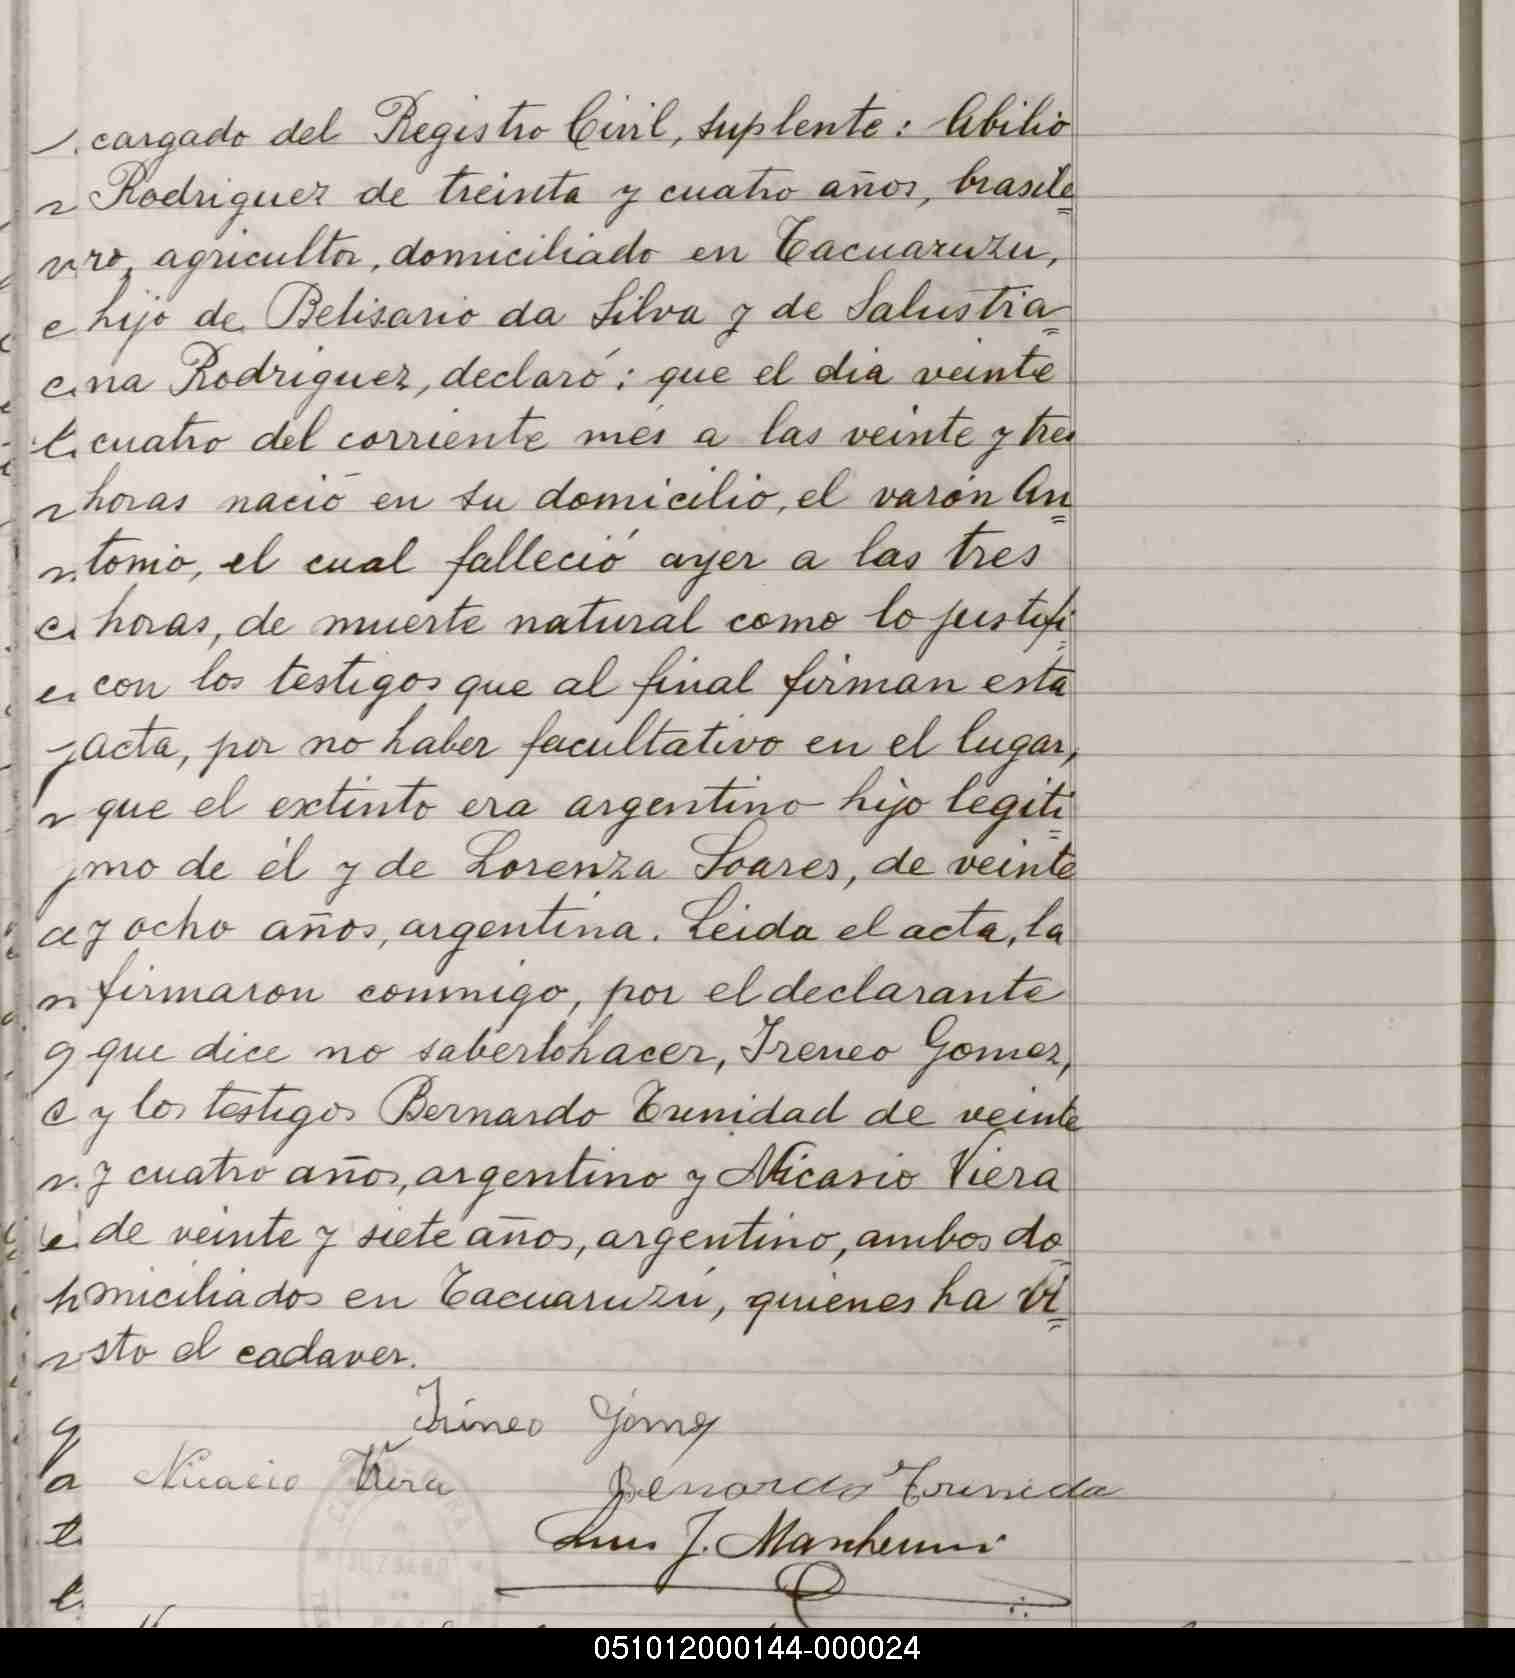 cargado del Registro Civil, suplente: Abilio
Rodriguez de treinta y cuatro años, brasile=
ro, agricultor, domiciliado en Tacuaruzu,
hijo de Belisario da Silva y de Salustia=
na Rodriguez, declaró: que el dia veinte
cuatro del corriente més a las veinte y tres
horas nació en su domicilio, el varón An=
tonio, el cual falleció ayer a las tres
horas, de muerte natural como lo justifi=
con los testigos que al final firman esta
acta, por no haber facultativo en el lugar,
que el extinto era argentino hijo legiti=
mo de él y de Lorenza Soares, de veinte
y ocho años, argentina. Leida el acta, la
firmaron conmigo, por el declarante
que dice no saberlo hacer, Ireneo Gomez,
y los testigos Bernardo Trinidad de veinte
y cuatro años, argentino y Nicasio Viera
de veinte y siete años, argentino, ambos do=
miciliados en Tacuaruzú, quienes ha vi=
sto el cadaver.
Irineo Gómez
Nicacio Viera Benardo Trinida
Luis J.
051012000144-000024